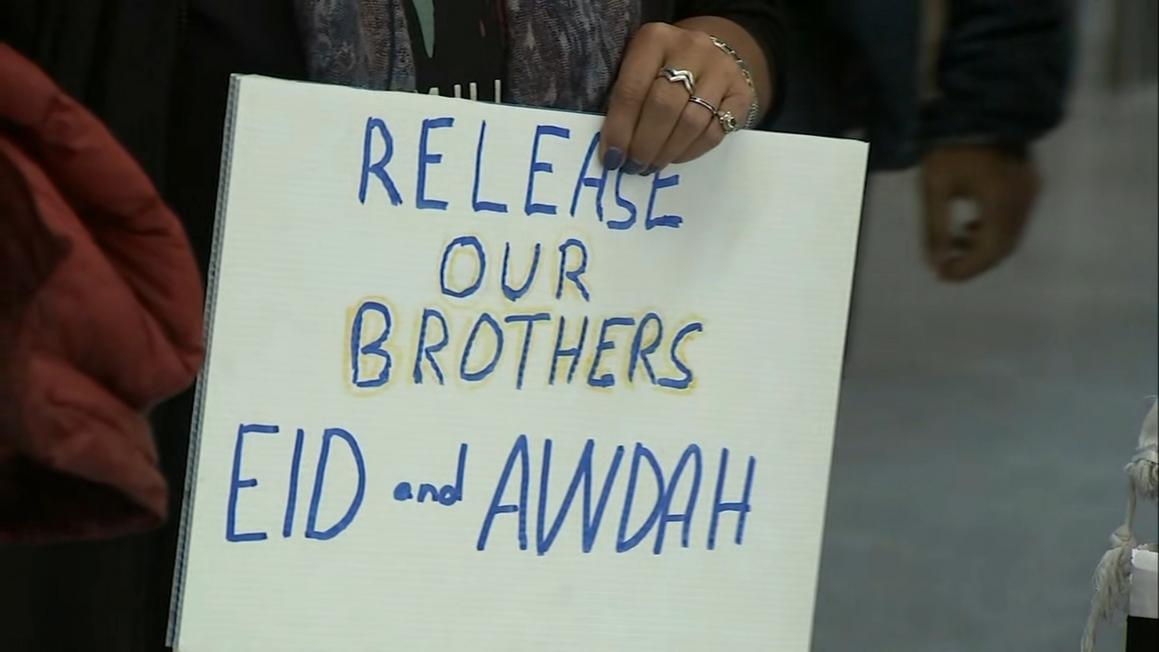 RELEASE
OUR
BROTHERS
EID and AWDAH